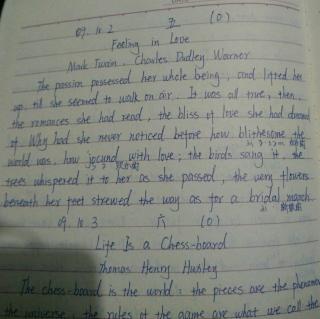 09. 10. 2 五 (0)
Feeling in Love
Mark Twain. Charles Dudley Warner
The passion possessed her whole being, and lifted her
up, till she seemed to walk on air. It was all true, then,
the romances she had read, the bliss of love she had dreamed
of. Why had she never noticed before how blithesome the
world was, how jocund with love; the birds sang it, the
trees whispered it to her as she passed, the very flowers
beneath her feet strewed the way as for a bridal march.
09. 10. 3 六 (0)
Life Is a Chess-board
Thomas Henry Huxley
The chess-board is the world: the pieces are the phenomena
the universe; the rules of the game are what we call the